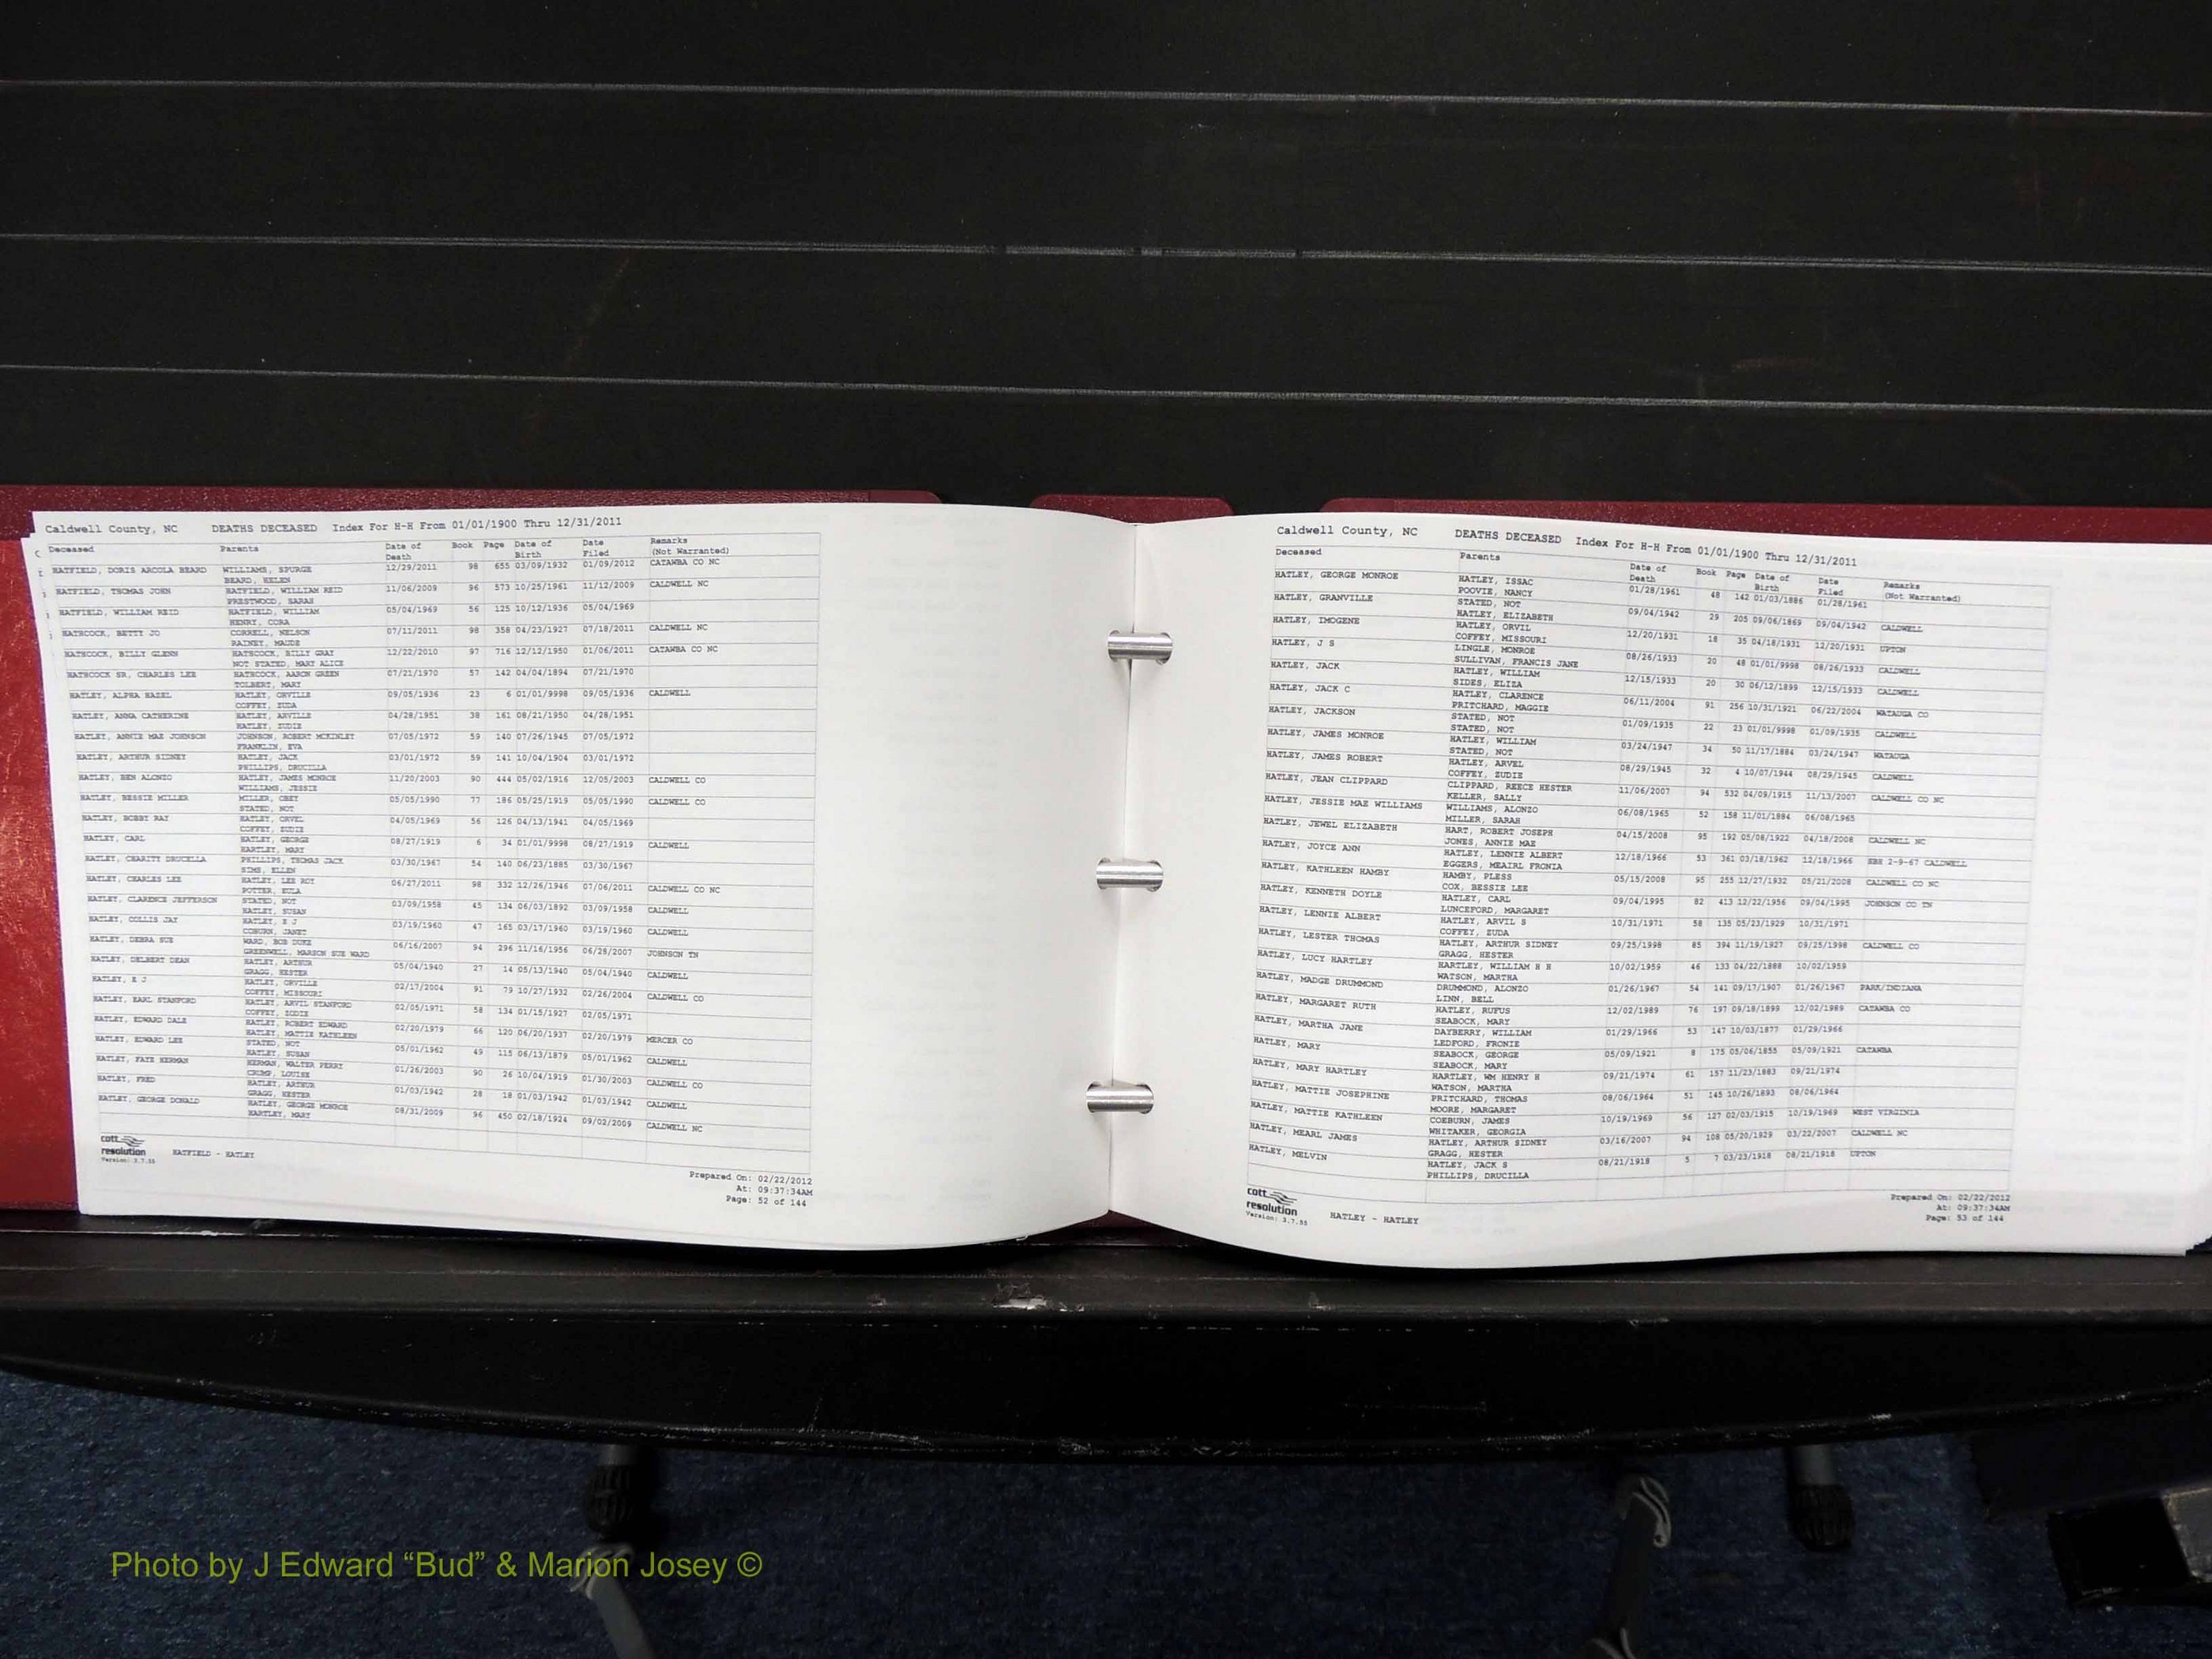 Caldwell County, NC DEATHS DECEASED Index For H-H From 01/01/1900 Thru 12/31/2011
Deceased Parents Date of Death Book Page Date of Birth Date Filed Remarks (Not Warranted)
HATFIELD, DORIS ARCOLA BEARD WILLIAMS, SPURGE 12/29/2011 98 655 03/09/1932 01/09/2012 CATAWBA CO NC
BEARD, HELEN
HATFIELD, THOMAS JOHN HATFIELD, WILLIAM REID 11/06/2009 96 573 10/25/1961 11/12/2009 CALDWELL NC
PRESTWOOD, SARAH
HATFIELD, WILLIAM REID HATFIELD, WILLIAM 05/04/1969 56 125 10/12/1936 05/04/1969
HENRY, CORA
HATHCOCK, BETTY JO CORRELL, NELSON 07/11/2011 98 358 04/23/1927 07/18/2011 CALDWELL NC
RAINEY, MAUDE
HATHCOCK, BILLY GLENN HATHCOCK, BILLY GRAY 12/22/2010 97 716 12/12/1950 01/06/2011 CATAWBA CO NC
NOT STATED, MARY ALICE
HATHCOCK SR, CHARLES LEE HATHCOCK, AARON GREEN 07/21/1970 57 142 04/04/1894 07/21/1970
TOLBERT, MARY
HATLEY, ALPHA HAZEL HATLEY, ORVILLE 09/05/1936 23 6 01/01/9998 09/05/1936 CALDWELL
COFFEY, ZUDA
HATLEY, ANNA CATHERINE HATLEY, ARVILLE 04/28/1951 38 161 08/21/1950 04/28/1951
HATLEY, ZUDIE
HATLEY, ANNIE MAE JOHNSON JOHNSON, ROBERT MCKINLEY 07/05/1972 59 140 07/26/1945 07/05/1972
FRANKLIN, EVA
HATLEY, ARTHUR SIDNEY HATLEY, JACK 03/01/1972 59 141 10/04/1904 03/01/1972
PHILLIPS, DRUCILLA
HATLEY, BEN ALONZO HATLEY, JAMES MONROE 11/20/2003 90 444 05/02/1916 12/05/2003 CALDWELL CO
WILLIAMS, JESSIE
HATLEY, BESSIE MILLER MILLER, OBEY 05/05/1990 77 186 05/25/1919 05/05/1990 CALDWELL CO
STATED, NOT
HATLEY, BOBBY RAY HATLEY, ORVEL 04/05/1969 56 126 04/13/1941 04/05/1969
COFFEY, ZUDIE
HATLEY, CARL HATLEY, GEORGE 08/27/1919 6 34 01/01/9998 08/27/1919 CALDWELL
HARTLEY, MARY
HATLEY, CHARITY DRUCELLA PHILLIPS, THOMAS JACK 03/30/1967 54 140 06/23/1885 03/30/1967
SIMS, ELLEN
HATLEY, CHARLES LEE HATLEY, LEE ROY 06/27/2011 98 332 12/26/1946 07/06/2011 CALDWELL CO NC
POTTER, EULA
HATLEY, CLARENCE JEFFERSON STATED, NOT 03/09/1958 45 134 06/03/1892 03/09/1958 CALDWELL
HATLEY, SUSAN
HATLEY, COLLIS JAY HATLEY, E J 03/19/1960 47 165 03/17/1960 03/19/1960 CALDWELL
COBURN, JANET
HATLEY, DEBRA SUE WARD, BOB DUKE 06/16/2007 94 296 11/16/1956 06/28/2007 JOHNSON TN
GREENWELL, MARSON SUE WARD
HATLEY, DELBERT DEAN HATLEY, ARTHUR 05/04/1940 27 14 05/13/1940 05/04/1940 CALDWELL
GRAGG, HESTER
HATLEY, E J HATLEY, ORVILLE 02/17/2004 91 79 10/27/1932 02/26/2004 CALDWELL CO
COFFEY, MISSOURI
HATLEY, EARL STANFORD HATLEY, ARVIL STANFORD 02/05/1971 58 134 01/15/1927 02/05/1971
COFFEY, ZODIE
HATLEY, EDWARD DALE HATLEY, ROBERT EDWARD 02/20/1979 66 120 06/20/1937 02/20/1979 MERCER CO
HATLEY, MATTIE KATHLEEN
HATLEY, EDWARD LEE STATED, NOT 05/01/1962 49 115 06/13/1879 05/01/1962 CALDWELL
HATLEY, SUSAN
HATLEY, FAYE HERMAN HERMAN, WALTER PERRY 01/26/2003 90 26 10/04/1919 01/30/2003 CALDWELL CO
CRUMP, LOUISE
HATLEY, FRED HATLEY, ARTHUR 01/03/1942 28 18 01/03/1942 01/03/1942 CALDWELL
GRAGG, HESTER
HATLEY, GEORGE DONALD HATLEY, GEORGE MONROE 08/31/2009 96 450 02/18/1924 09/02/2009 CALDWELL NC
HARTLEY, MARY
cott
resolution HATFIELD - HATLEY
Version: 3.7.55
Prepared On: 02/22/2012
At: 09:37:34AM
Page: 52 of 144
Caldwell County, NC DEATHS DECEASED Index For H-H From 01/01/1900 Thru 12/31/2011
Deceased Parents Date of Death Book Page Date of Birth Date Filed Remarks (Not Warranted)
HATLEY, GEORGE MONROE HATLEY, ISSAC 01/28/1961 48 142 01/03/1886 01/28/1961
POOVIE, NANCY
HATLEY, GRANVILLE STATED, NOT 09/04/1942 29 205 09/06/1869 09/04/1942 CALDWELL
HATLEY, ELIZABETH
HATLEY, IMOGENE HATLEY, ORVIL 12/20/1931 18 35 04/18/1931 12/20/1931 UPTON
COFFEY, MISSOURI
HATLEY, J S LINGLE, MONROE 08/26/1933 20 48 01/01/9998 08/26/1933 CALDWELL
SULLIVAN, FRANCIS JANE
HATLEY, JACK HATLEY, WILLIAM 12/15/1933 20 30 06/12/1899 12/15/1933 CALDWELL
SIDES, ELIZA
HATLEY, JACK C HATLEY, CLARENCE 06/11/2004 91 256 10/31/1921 06/22/2004 WATAUGA CO
PRITCHARD, MAGGIE
HATLEY, JACKSON STATED, NOT 01/09/1935 22 23 01/01/9998 01/09/1935 CALDWELL
STATED, NOT
HATLEY, JAMES MONROE HATLEY, WILLIAM 03/24/1947 34 50 11/17/1884 03/24/1947 WATAUGA
STATED, NOT
HATLEY, JAMES ROBERT HATLEY, ARVEL 08/29/1945 32 4 10/07/1944 08/29/1945 CALDWELL
COFFEY, ZUDIE
HATLEY, JEAN CLIPPARD CLIPPARD, REECE HESTER 11/06/2007 94 532 04/09/1915 11/13/2007 CALDWELL CO NC
KELLER, SALLY
HATLEY, JESSIE MAE WILLIAMS WILLIAMS, ALONZO 06/08/1965 52 158 11/01/1884 06/08/1965
MILLER, SARAH
HATLEY, JEWEL ELIZABETH HART, ROBERT JOSEPH 04/15/2008 95 192 05/08/1922 04/18/2008 CALDWELL NC
JONES, ANNIE MAE
HATLEY, JOYCE ANN HATLEY, LENNIE ALBERT 12/18/1966 53 361 03/18/1962 12/18/1966 SBH 2-9-67 CALDWELL
EGGERS, MEAIRL FRONIA
HATLEY, KATHLEEN HAMBY HAMBY, PLESS 05/15/2008 95 255 12/27/1932 05/21/2008 CALDWELL CO NC
COX, BESSIE LEE
HATLEY, KENNETH DOYLE HATLEY, CARL 09/04/1995 82 413 12/22/1956 09/04/1995 JOHNSON CO TN
LUNCEFORD, MARGARET
HATLEY, LENNIE ALBERT HATLEY, ARVIL S 10/31/1971 58 135 05/23/1929 10/31/1971
COFFEY, ZUDA
HATLEY, LESTER THOMAS HATLEY, ARTHUR SIDNEY 09/25/1998 85 394 11/19/1927 09/25/1998 CALDWELL CO
GRAGG, HESTER
HATLEY, LUCY HARTLEY HARTLEY, WILLIAM H H 10/02/1959 46 133 04/22/1888 10/02/1959
WATSON, MARTHA
HATLEY, MADGE DRUMMOND DRUMMOND, ALONZO 01/26/1967 54 141 09/17/1907 01/26/1967 PARK/INDIANA
LINN, BELL
HATLEY, MARGARET RUTH HATLEY, RUFUS 12/02/1989 76 197 09/18/1899 12/02/1989 CATAWBA CO
SEABOCK, MARY
HATLEY, MARTHA JANE DAYBERRY, WILLIAM 01/29/1966 53 147 10/03/1877 01/29/1966
LEDFORD, FRONIE
HATLEY, MARY SEABOCK, GEORGE 05/09/1921 8 175 05/06/1855 05/09/1921 CATAWBA
SEABOCK, MARY
HATLEY, MARY HARTLEY HARTLEY, WM HENRY H 09/21/1974 61 157 11/23/1883 09/21/1974
WATSON, MARTHA
HATLEY, MATTIE JOSEPHINE PRITCHARD, THOMAS 08/06/1964 51 145 10/26/1893 08/06/1964
MOORE, MARGARET
HATLEY, MATTIE KATHLEEN COEBURN, JAMES 10/19/1969 56 127 02/03/1915 10/19/1969 WEST VIRGINIA
WHITAKER, GEORGIA
HATLEY, MEARL JAMES HATLEY, ARTHUR SIDNEY 03/16/2007 94 108 05/20/1929 03/22/2007 CALDWELL NC
GRAGG, HESTER
HATLEY, MELVIN HATLEY, JACK S 08/21/1918 5 7 03/23/1918 08/21/1918 UPTON
PHILLIPS, DRUCILLA
cott
resolution HATLEY - HATLEY
Version: 3.7.55
Prepared On: 02/22/2012
At: 09:37:34AM
Page: 53 of 144
Photo by J Edward “Bud” & Marion Josey ©